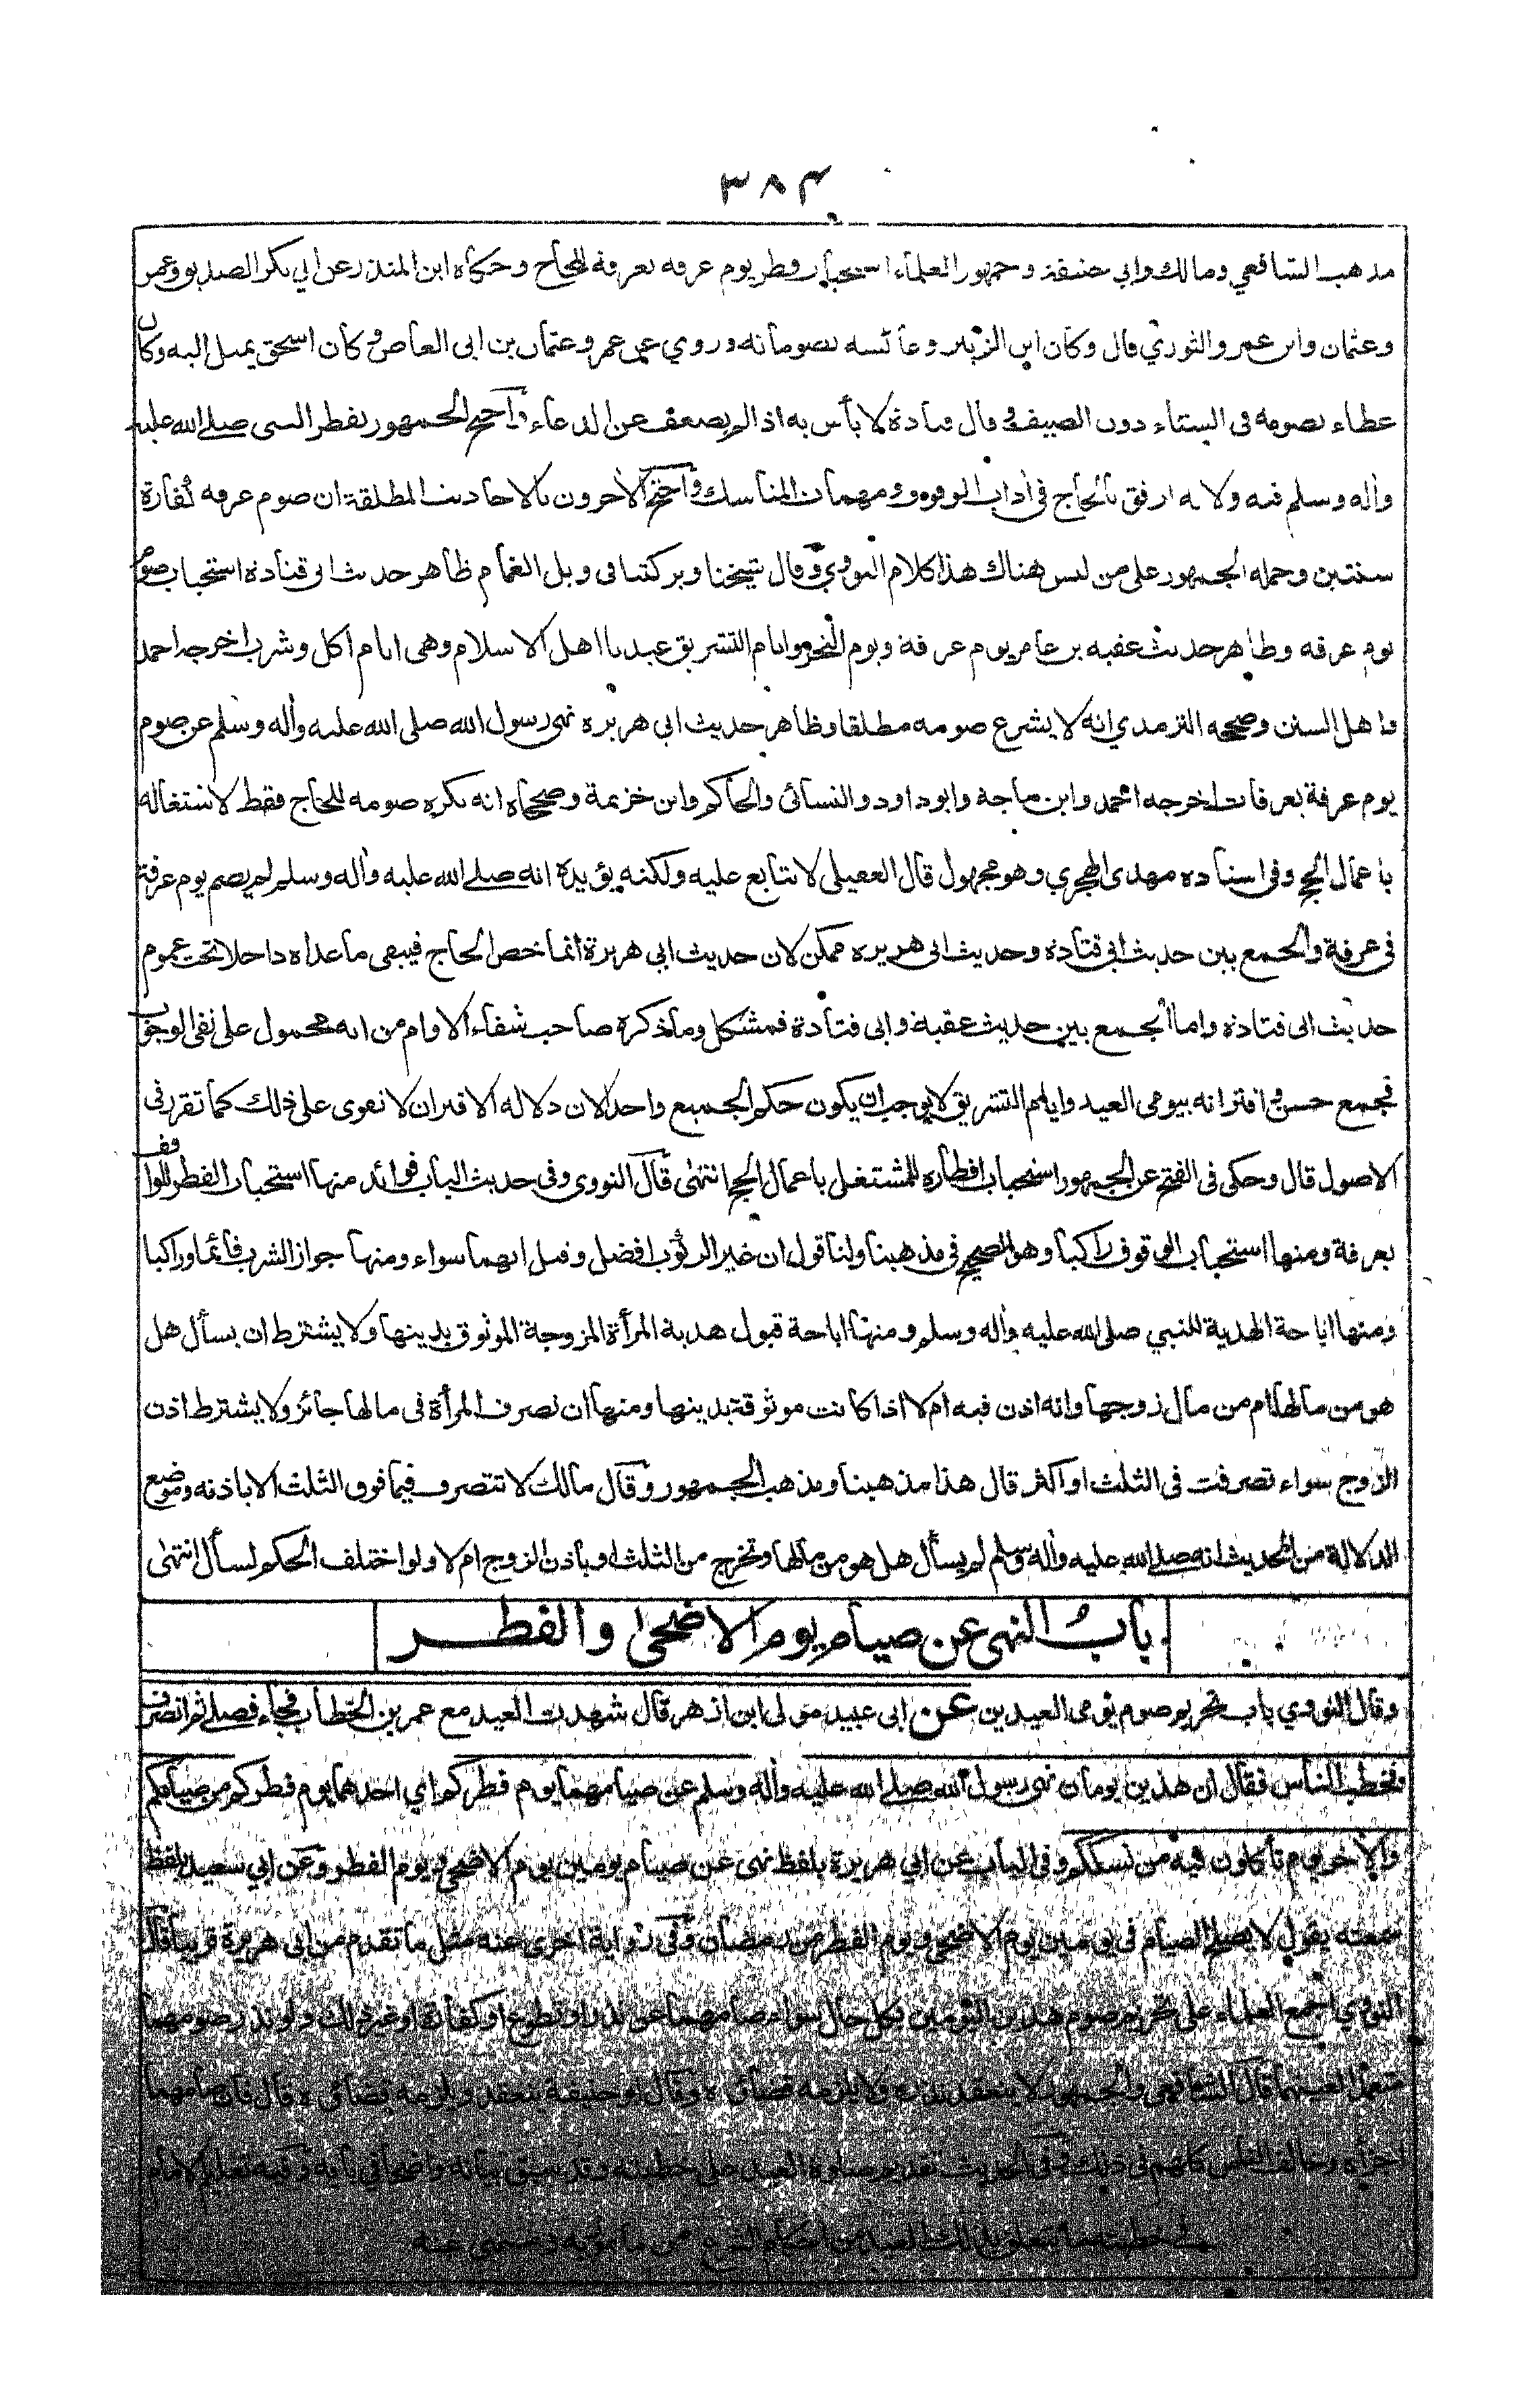 ٣٨٤
مذهب الشافعي ومالك وابي حنيفة وجمهور العلماء استحباب فطر يوم عرفه بعرفة للحاج وحكاه ابن المنذر عن ابي بكر الصديق وعمر
وعثمان وابن عمر والثوري قال وكان ابن الزبير وعائشه يصومانه وروي عن عمر وعثمان بن ابى العاص وكان اسحق يميل اليه وكان
عطاء يصومه فى الشتاء دون الصيف وقال قتادة لا بأس به اذا لم يضعف عن الدعاء واحتج الجمهور بفطر النبى صلى الله عليه
وأله وسلم فيه ولانه ارفق بالحاج فى أداب الوقوف ومهمات المناسك واحتج الأخرون بالاحاديث المطلقة ان صوم عرفه كفارة
سنتين وحمله الجمهور على من ليس هناك هذا كلام النووي وقال شيخنا وبركتنا فى وبل الغمام ظاهر حديث ابى قتادة استحباب صوم
يوم عرفه وظاهر حديث عقبه بن عامر يوم عرفة ويوم النحر وايام التشريق عيدنا اهل الاسلام وهى ايام اكل وشرب اخرجه احمد
واهل السنن وصححه الترمذي انه لا يشرع صومه مطلقا وظاهر حديث ابي هريره نهى رسول الله صلى الله عليه وأله وسلم عن صوم
يوم عرفة بعرفات اخرجه احمد وابن ماجة وابوداود والنسائى والحاكم وابن خزيمة وصححاه انه يكره صومه للحاج فقط لاشتغاله
باعمال الحج وفى اسناده مهدى الهجري وهو مجهول قال العقيلى لا يتابع عليه ولكنه يؤيده انه صلى الله عليه وأله وسلم لم يصم يوم عرفة
فى عرفة والجمع بين حديث ابى قتادة وحديث ابى هريره ممكن لان حديث ابي هريرة انما خص الحاج فيبقى ما عداه داخلا تحت عموم
حديث ابى قتادة واما الجمع بين حديث عقبة وابى قتادة فمشكل وما ذكره صاحب شفاء الاوام من انه محمول على نفى الوجوب
فجمع حسن واقترانه بيومى العيد وايام التشريق لا يوجب ان يكون حكم الجميع واحدا لان دلاله الاقتران لا تقوى على ذلك كما تقرر فى
الاصول قال وحكى فى الفتح عن الجمهور استحباب افطاره للمشتغل باعمال الحج انتهى قال النووى وفى حديث الباب فوائد منها استحباب الفطر للواقف
بعرفة ومنها استحباب الوقوف راكبا وهو الصحيح فى مذهبنا ولنا قول ان غير الركوب افضل وقيل انهما سواء ومنها جواز الشرب قائما وراكبا
ومنها اباحة الهدية للنبي صلى الله عليه وأله وسلم ومنها اباحة قبول هدية المرأة المزوجة الموثوق بدينها ولا يشترط ان يسأل هل
هو من مالها ام من مال زوجها وانه اذن فيه ام لا اذا كانت موثوقة بدينها ومنها ان تصرف المرأة فى مالها جائز ولا يشترط اذن
الزوج سواء تصرفت فى الثلث او اكثر قال هذا مذهبنا ومذهب الجمهور وقال مالك لا تتصرف فيما فوق الثلث الا باذنه وموضع
الدلالة من الحديث انه صلى الله عليه وأله وسلم لم يسأل هل هو من مالها وتخرج من الثلث او باذن الزوج ام لا ولو اختلف الحكم لسأل انتهى
باب النهى عن صيام يوم الاضحى والفطر
وقال النووي باب تحريم صوم يومى العيدين عن ابى عبيد مولى ابن ازهر قال شهدت العيد مع عمر بن الخطاب فجاء فصلى ثم انصرف
فخطب الناس فقال ان هذين يومان نهى رسول الله صلى الله عليه وأله وسلم عن صيامهما يوم فطركم اي احدهما يوم فطركم من صيامكم
والأخر يوم تأكلون فيه من نسككم وفى الباب عن ابي هريرة بلفظ نهى عن صيام يومين يوم الاضحى ويوم الفطر وعن ابي سعيد بلفظ
سمعته يقول لا يصلح الصيام فى يومين يوم الاضحى ويوم الفطر من رمضان وفى رواية اخرى عنه مثل ما تقدم من ابى هريرة قريبا قال
النووي اجمع العلماء على تحريم صوم هذين اليومين بكل حال سواء صامهما عن نذر او تطوع او كفارة او غير ذلك ولو نذر صومهما
متعمدا لعينهما قال الشافعي والجمهور لا ينعقد نذره ولا يلزمه قضاؤه وقال ابو حنيفة ينعقد ويلزمه قضاؤه قال فان صامهما
اجزأه وخالف الناس كلهم فى ذلك وفى الحديث تقديم صلوة العيد على خطبته وقد سبق بيانه واضحا في بابه وفيه تعليم الامام
فى خطبته ما يتعلق بذلك العيد من احكام الشرع من مأمور به ومنهى عنه